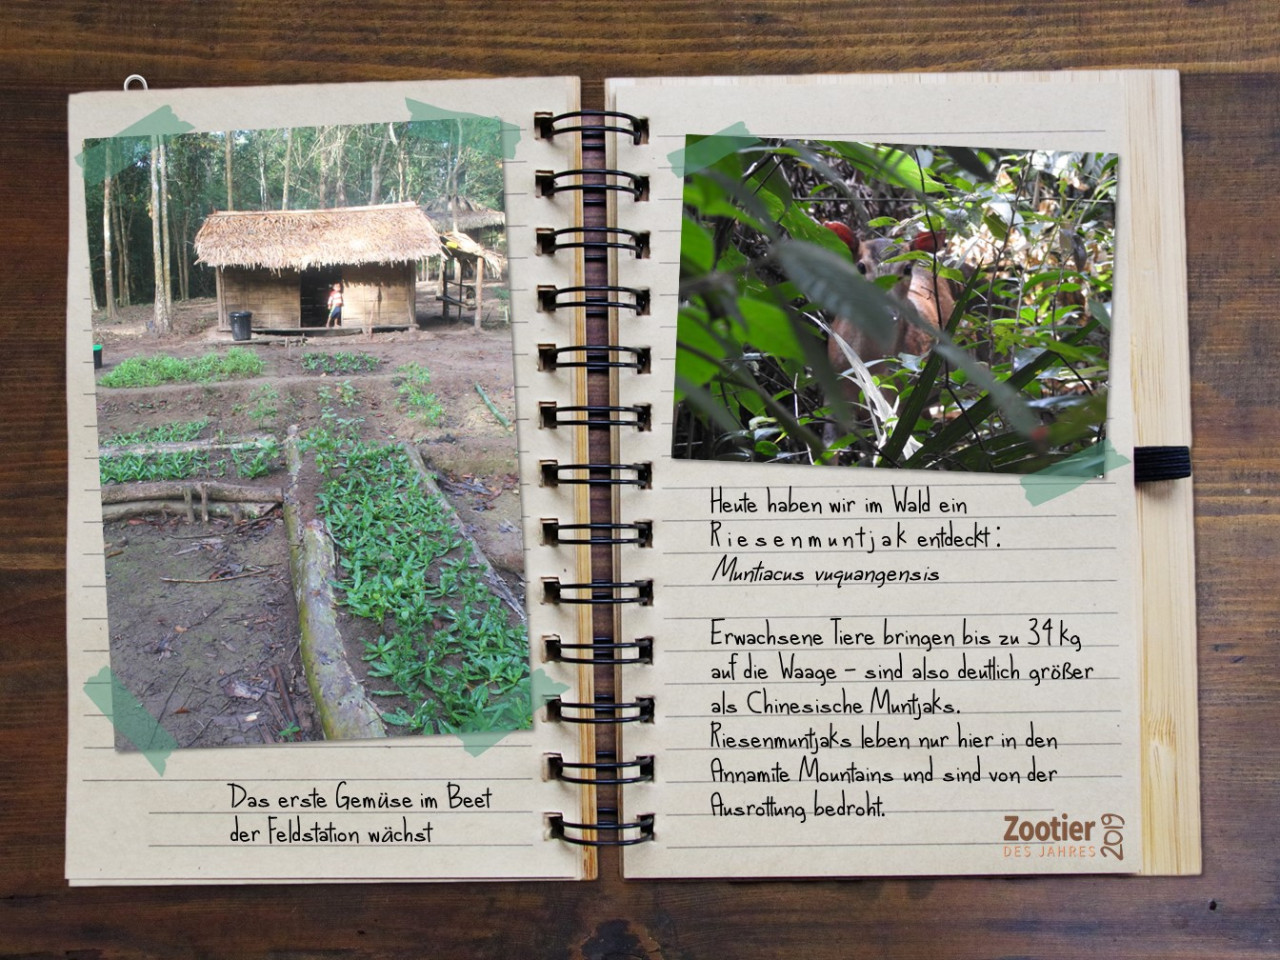 Das erste Gemüse im Beet
der Feldstation wächst
Heute haben wir im Wald ein
Riesenmuntjak entdeckt:
Muntiacus vuquangensis
Erwachsene Tiere bringen bis zu 34 kg
auf die Waage – sind also deutlich größer
als Chinesische Muntjaks.
Riesenmuntjaks leben nur hier in den
Annamite Mountains und sind von der
Ausrottung bedroht.
Zootier
DES JAHRES
2019